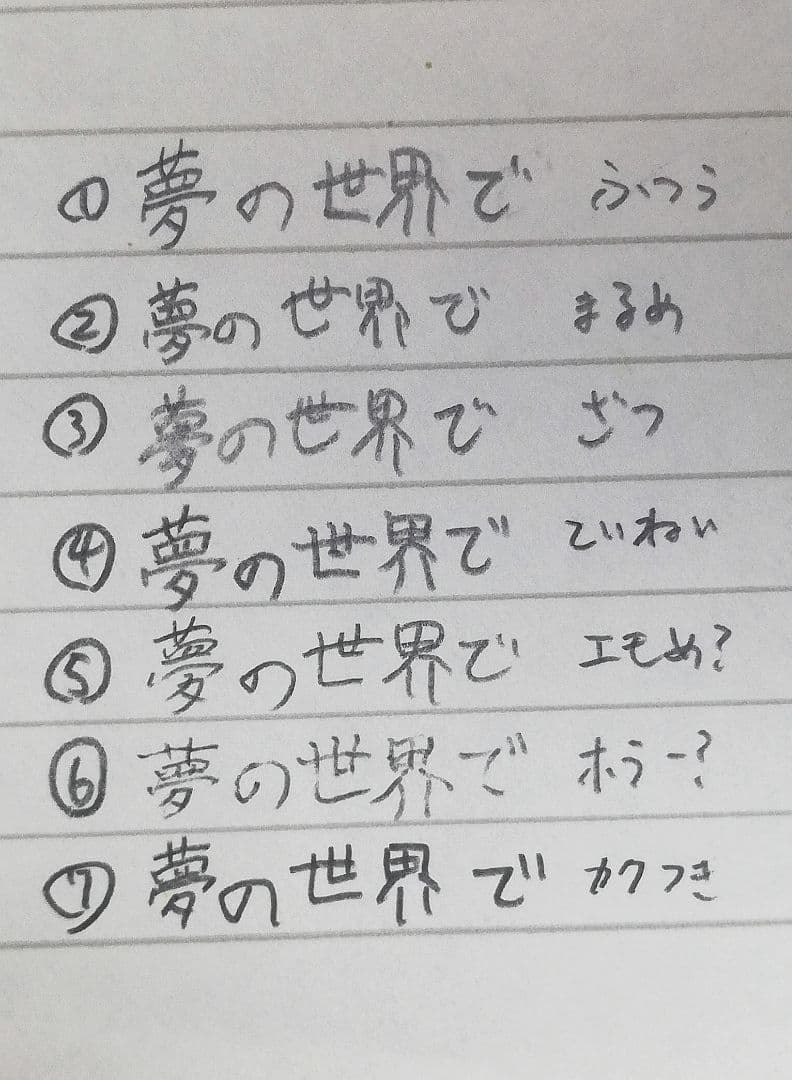 ① 夢の世界で ふつう
② 夢の世界で まるめ
③ 夢の世界で ざつ
④ 夢の世界で ていねい
⑤ 夢の世界で エモめ?
⑥ 夢の世界で ホラー?
⑦ 夢の世界で カクつき